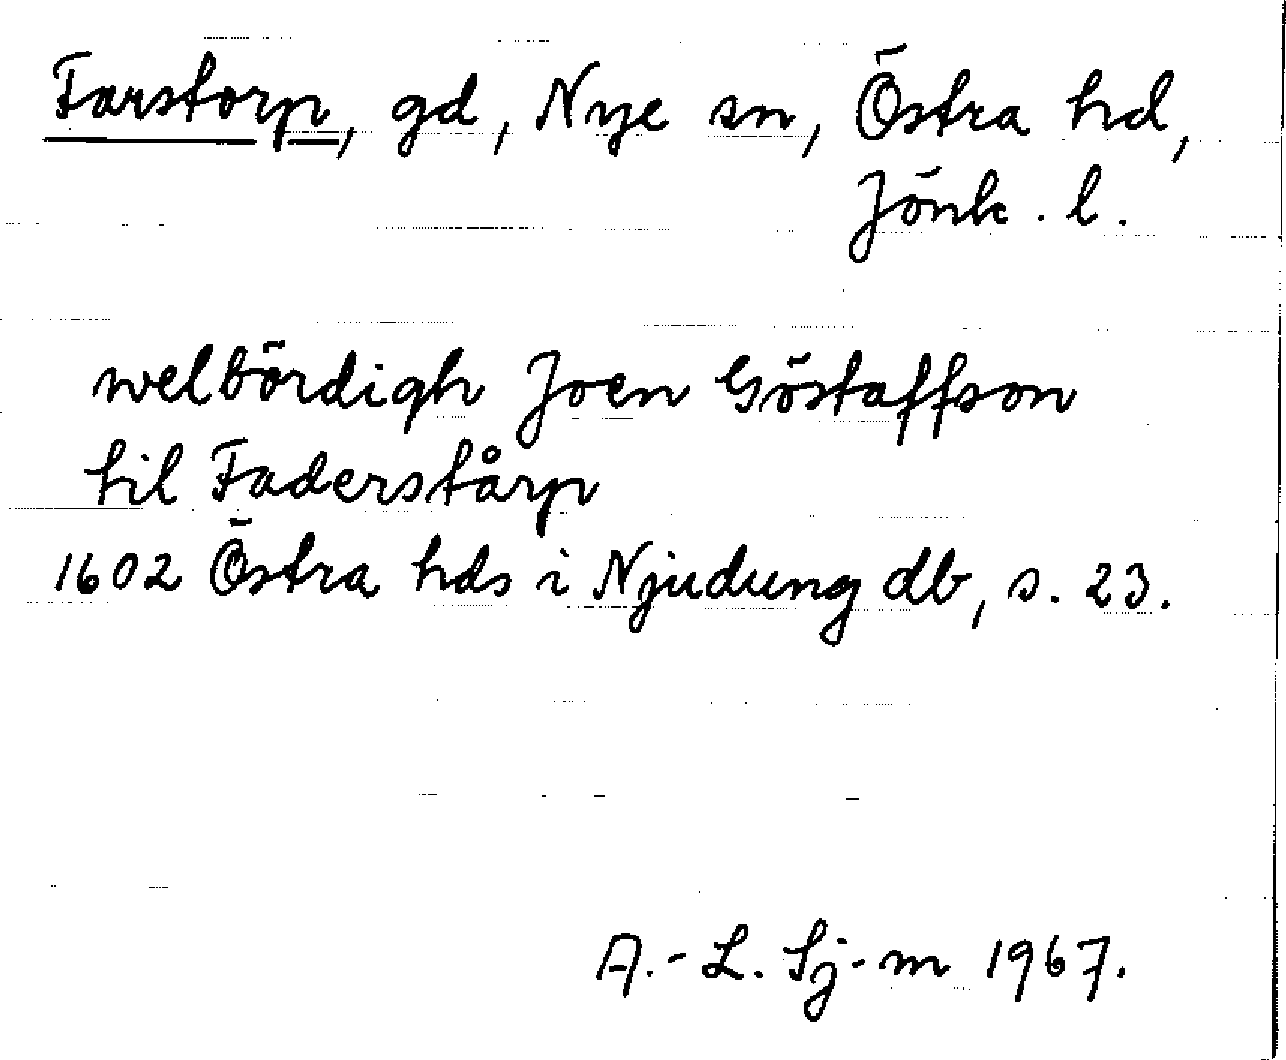 Farstorp, gd, Nye sn, Östra hd,
Jönk. l.
welbördigh Joen Göstaffson
til Faderstårp
1602 Östra hds i Njudung db, s. 23.
A.-L. Sj-m 1967.